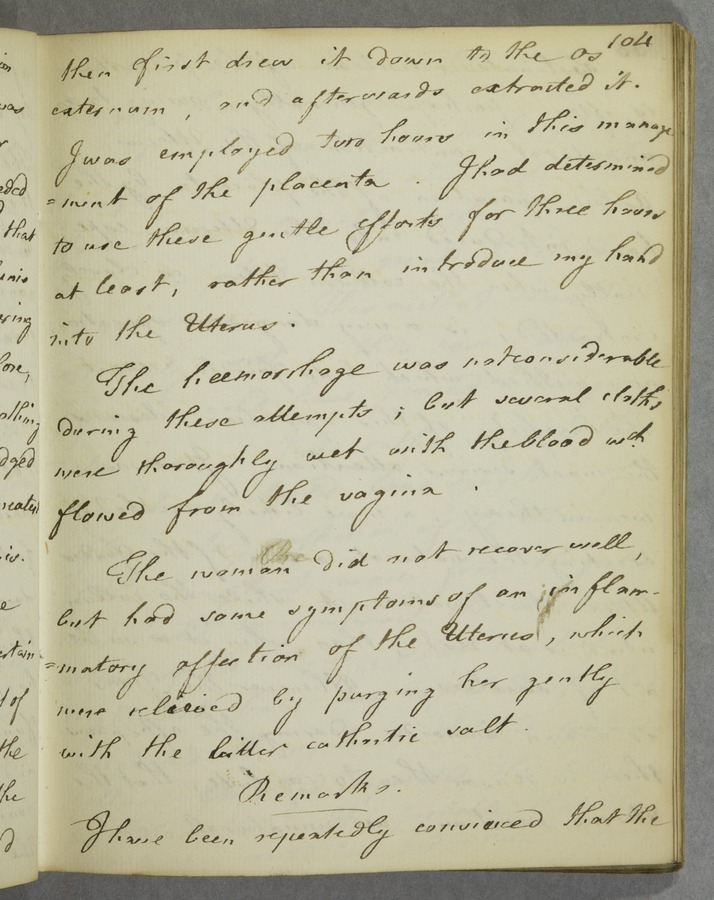 104
then first drew it down to the os
externum, and afterwards extracted it.
I was employed two hours in this manage
=ment of the placenta. I had determined
to use these gentle efforts for three hours
at least, rather than introduce my hand
into the Uterus.
The heemorrhage was not considerable
during these attempts; but several cloths
were thoroughly wet with the blood wch
flowed from the vagina.
The woman did not recover well,
but had some symptoms of an inflam-
=matory affection of the Uterus, which
were relieved by purging her gently
with the bitter cathartic salt.
Remarks.
I have been repeatedly convinced that the